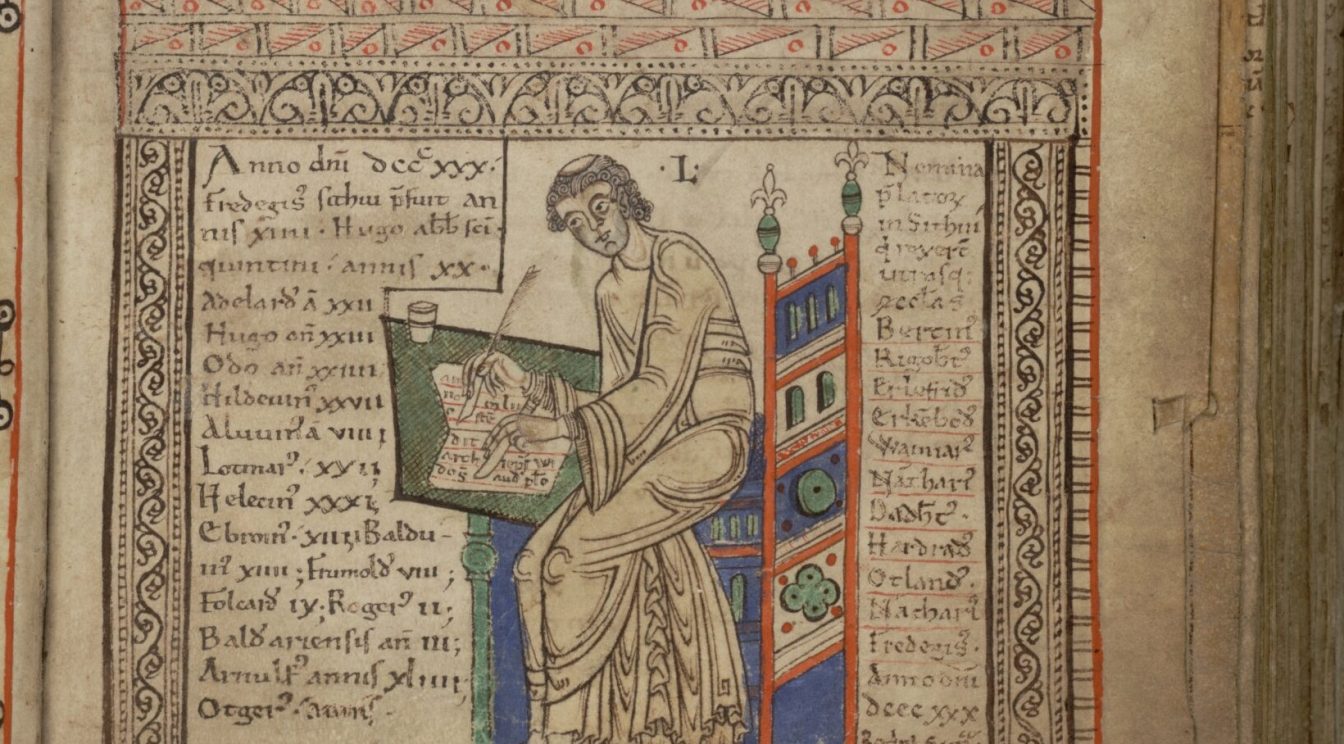 Anno dñi dccc xxx·
Fredegis' sithiu p̄fuit an
nis xiiii· Hugo abb̄ sci·
quintini· annis xx·
Adelard' ā xxii
Hugo an̄ xxiii
Odo an̄ xxiiii
Hilduuin' xxvii
Aluuin' ā viiii
Lotmar'· xxii
Helecin' xxxi
Ebroin'· xiiii Baldu-
in' xiiii; Frumold' viii;
Folcard' ix· Roger' ii;
Bald' ariensis an̄ iii;
Arnulf' annis xliiii
Otger'· annis·
·L·
Nomina
p̄latoꝝ
in Sithiu
q̇ rexer̄t
utrasq;
Bertin'
Rigob̄t'
Erlefrid'
Erkēbod'
Wamar'
Nathari'
Dadb̄t'·
Hardrad'
Otland'·
Nathari'
Fredegis'·
Anno dñi
dccc xxx